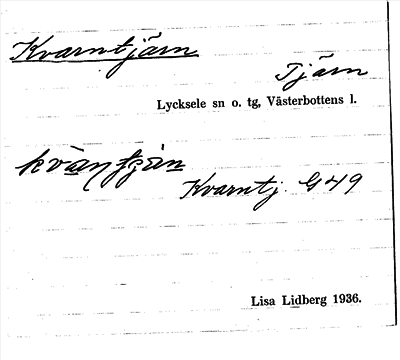 Kvarntjärn
Tjärn
Lycksele sn o. tg, Västerbottens l.
Kvarntj. G49
Lisa Lidberg 1936.